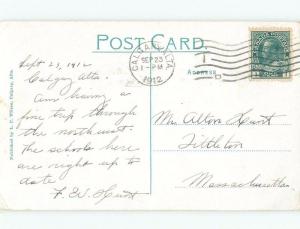 POST CARD.
CALGARY, ALTA.
SEP 23
1-PM
1912
Address
Sept 23, 1912
Calgary Alta.
Am having a
fine trip through
the northwest.
The schools here
are right up to
date
F. W. Hunt
Mr. Allen Hunt
Littleton
Massachusetts